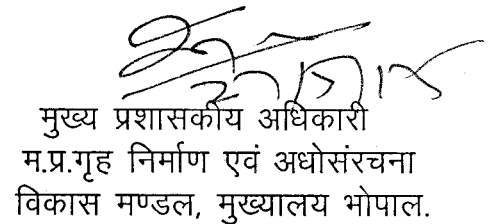 मुख्य प्रशासकीय अधिकारी
म.प्र.गृह निर्माण एवं अधोसंरचना
विकास मण्डल, मुख्यालय भोपाल.